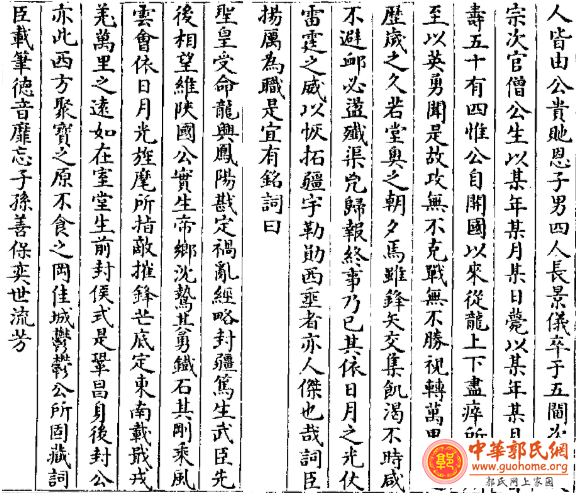 人皆由公貴貤恩子男四人長景儀卒子五閭次
宗次官僧公生以某年某月某日薨以某年某月
壽五十有四惟公自開國以來從龍上下盡瘁所
至以英勇聞是故攻無不克戰無不勝視轉萬里
歷歲之久若堂奥之朝夕焉雖鋒矢交集飢渴不時咸
不避䘏必盪殲渠兇歸報終事乃已其依日月之光伏
雷霆之威以恢拓疆宇勒勛西垂者亦人傑也哉詞臣
揚厲為職是宜有銘詞曰
聖皇受命龍興鳳陽戡定禍亂經略封疆篤生武臣先
後相望維陝國公實生帝鄉沈鷙其勇鐵石其剛乘風
雲會依日月光旌麾所指敵摧鋒芒底定東南載戢戎
羌萬里之遠如在室堂生前封侯式是鞏昌身後封公
亦此西方聚寶之原不食之岡佳城鬱鬱公所固藏詞
臣載筆德音靡忘子孫善保奕世流芳
中華郭氏網
www.guohome.org
郭氏网上家园